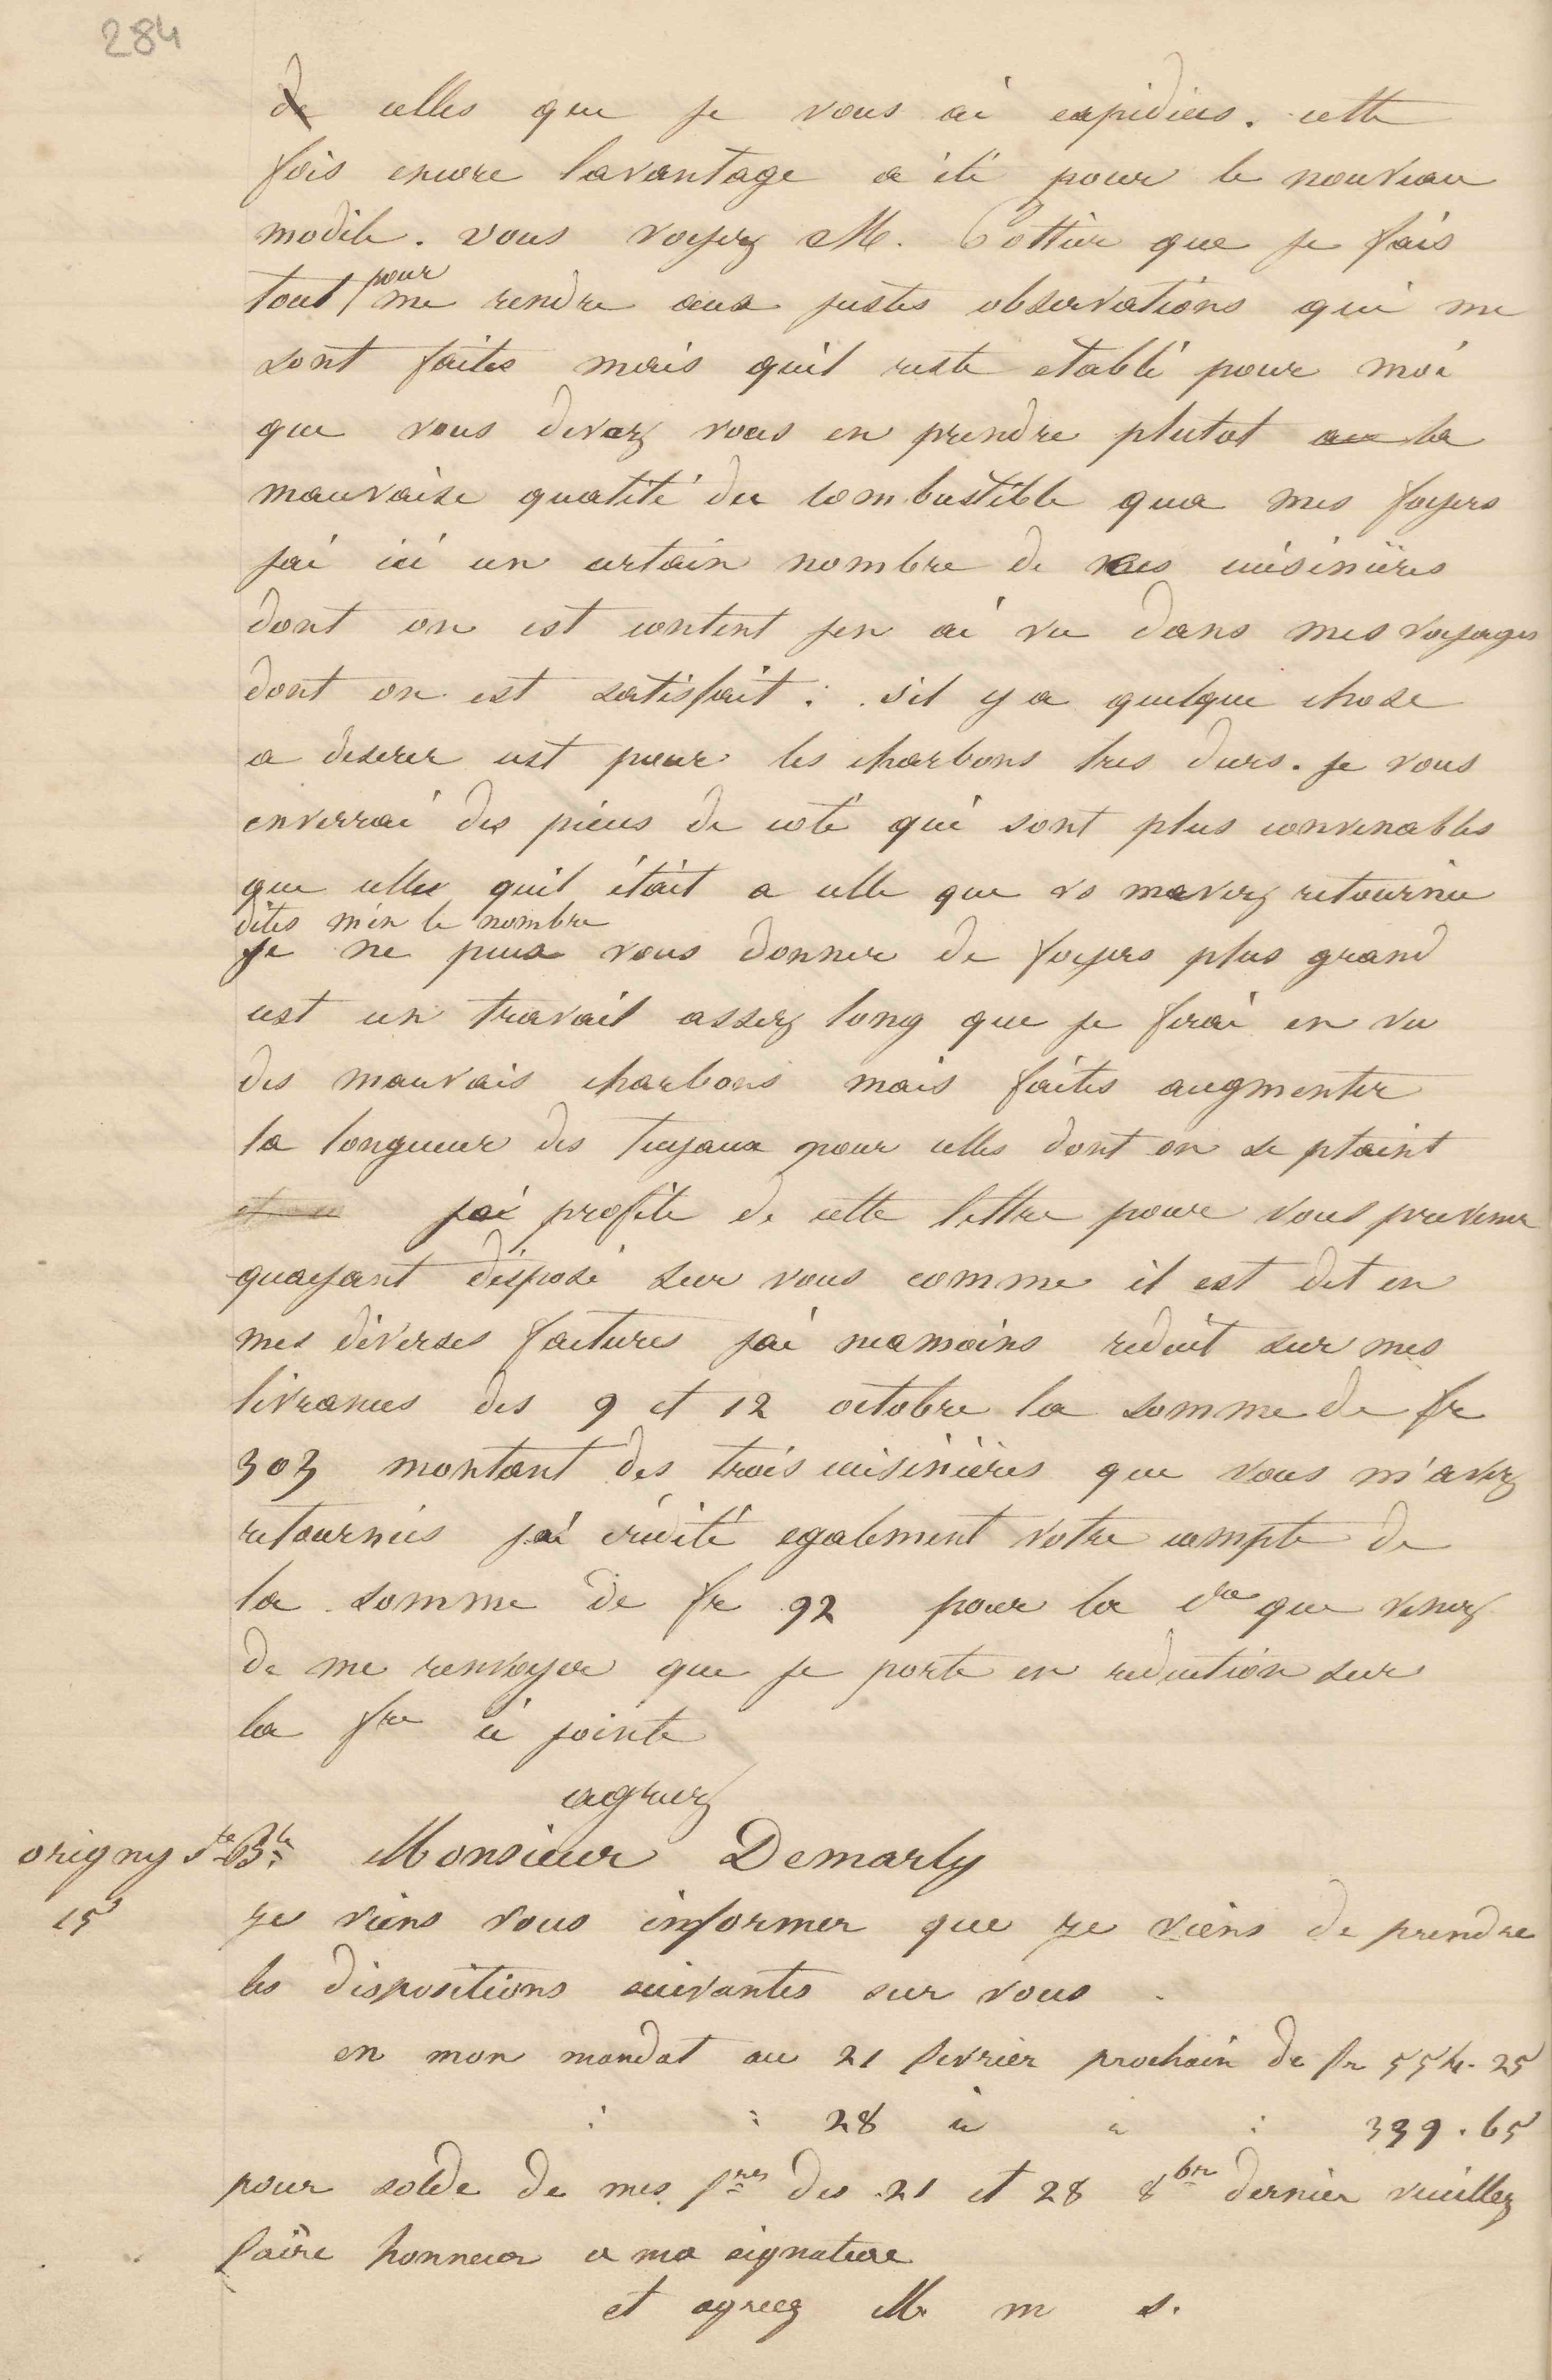 284
de celles que je vous ai expidiées. cette
fois encore lavantage a été pour le nouveau
modèle. vous voyez M. Cottier que je fais
tout pour me rendre aux justes observations qui me
sont faites mais quil reste etabli pour moi
que vous devez vous en prendre plutot au la
mauvaise qualité du combustible qua mes foyers
jai ici un certain nombre de ces cuisinières
dont on est content jen ai vu dans mes voyages
dont on est satisfait. sil y a quelque chose
a deserer cest pour les charbons tres durs. je vous
enverrai des pièces de coté qui sont plus convenables
que celles quil était a celle que vs mavez retournée
dites men le nombre
je ne peux vous donner de foyers plus grand
cest un travail assez long que je ferai en vu
des mauvais charbons mais faites augmenter
la longueur des tuyaux pour celles dont on se plaint
jai profité de cette lettre pour vous prevenir
quayant disposé sur vous comme il est dit en
mes diverses factures jai neamoins reduit sur mes
livrances des 9 et 12 octobre la somme de fr
303 montant des trois cuisinières que vous m'avez
retournées jai crédité egalement votre compte de
la somme de fr 92 pour la dre que venez
de me renvoyer que je porte en reduction sur
la fre ci jointe
agreez
origny Ste Bte Monsieur Demarly
15 je viens vous informer que je viens de prendre
les dispositions suivantes sur vous.
en mon mandat au 21 fevrier prochain de fr 554.25
: : 28 " " : 339.65
pour solde de mes fres des 21 et 28 8bre dernier veuillez
faire honneur a ma signature
et agreez M. m s.